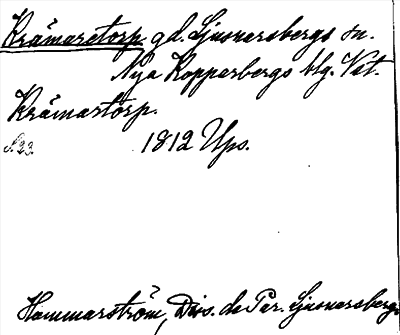 Krämaretorp gd. Ljusnarsbergs sn.
Nya Kopparbergs blg. Vst.
Krämartorp.
S. 23. 1812 Ups.
Hammarström, Diss. de Par. Ljusnarsberg.